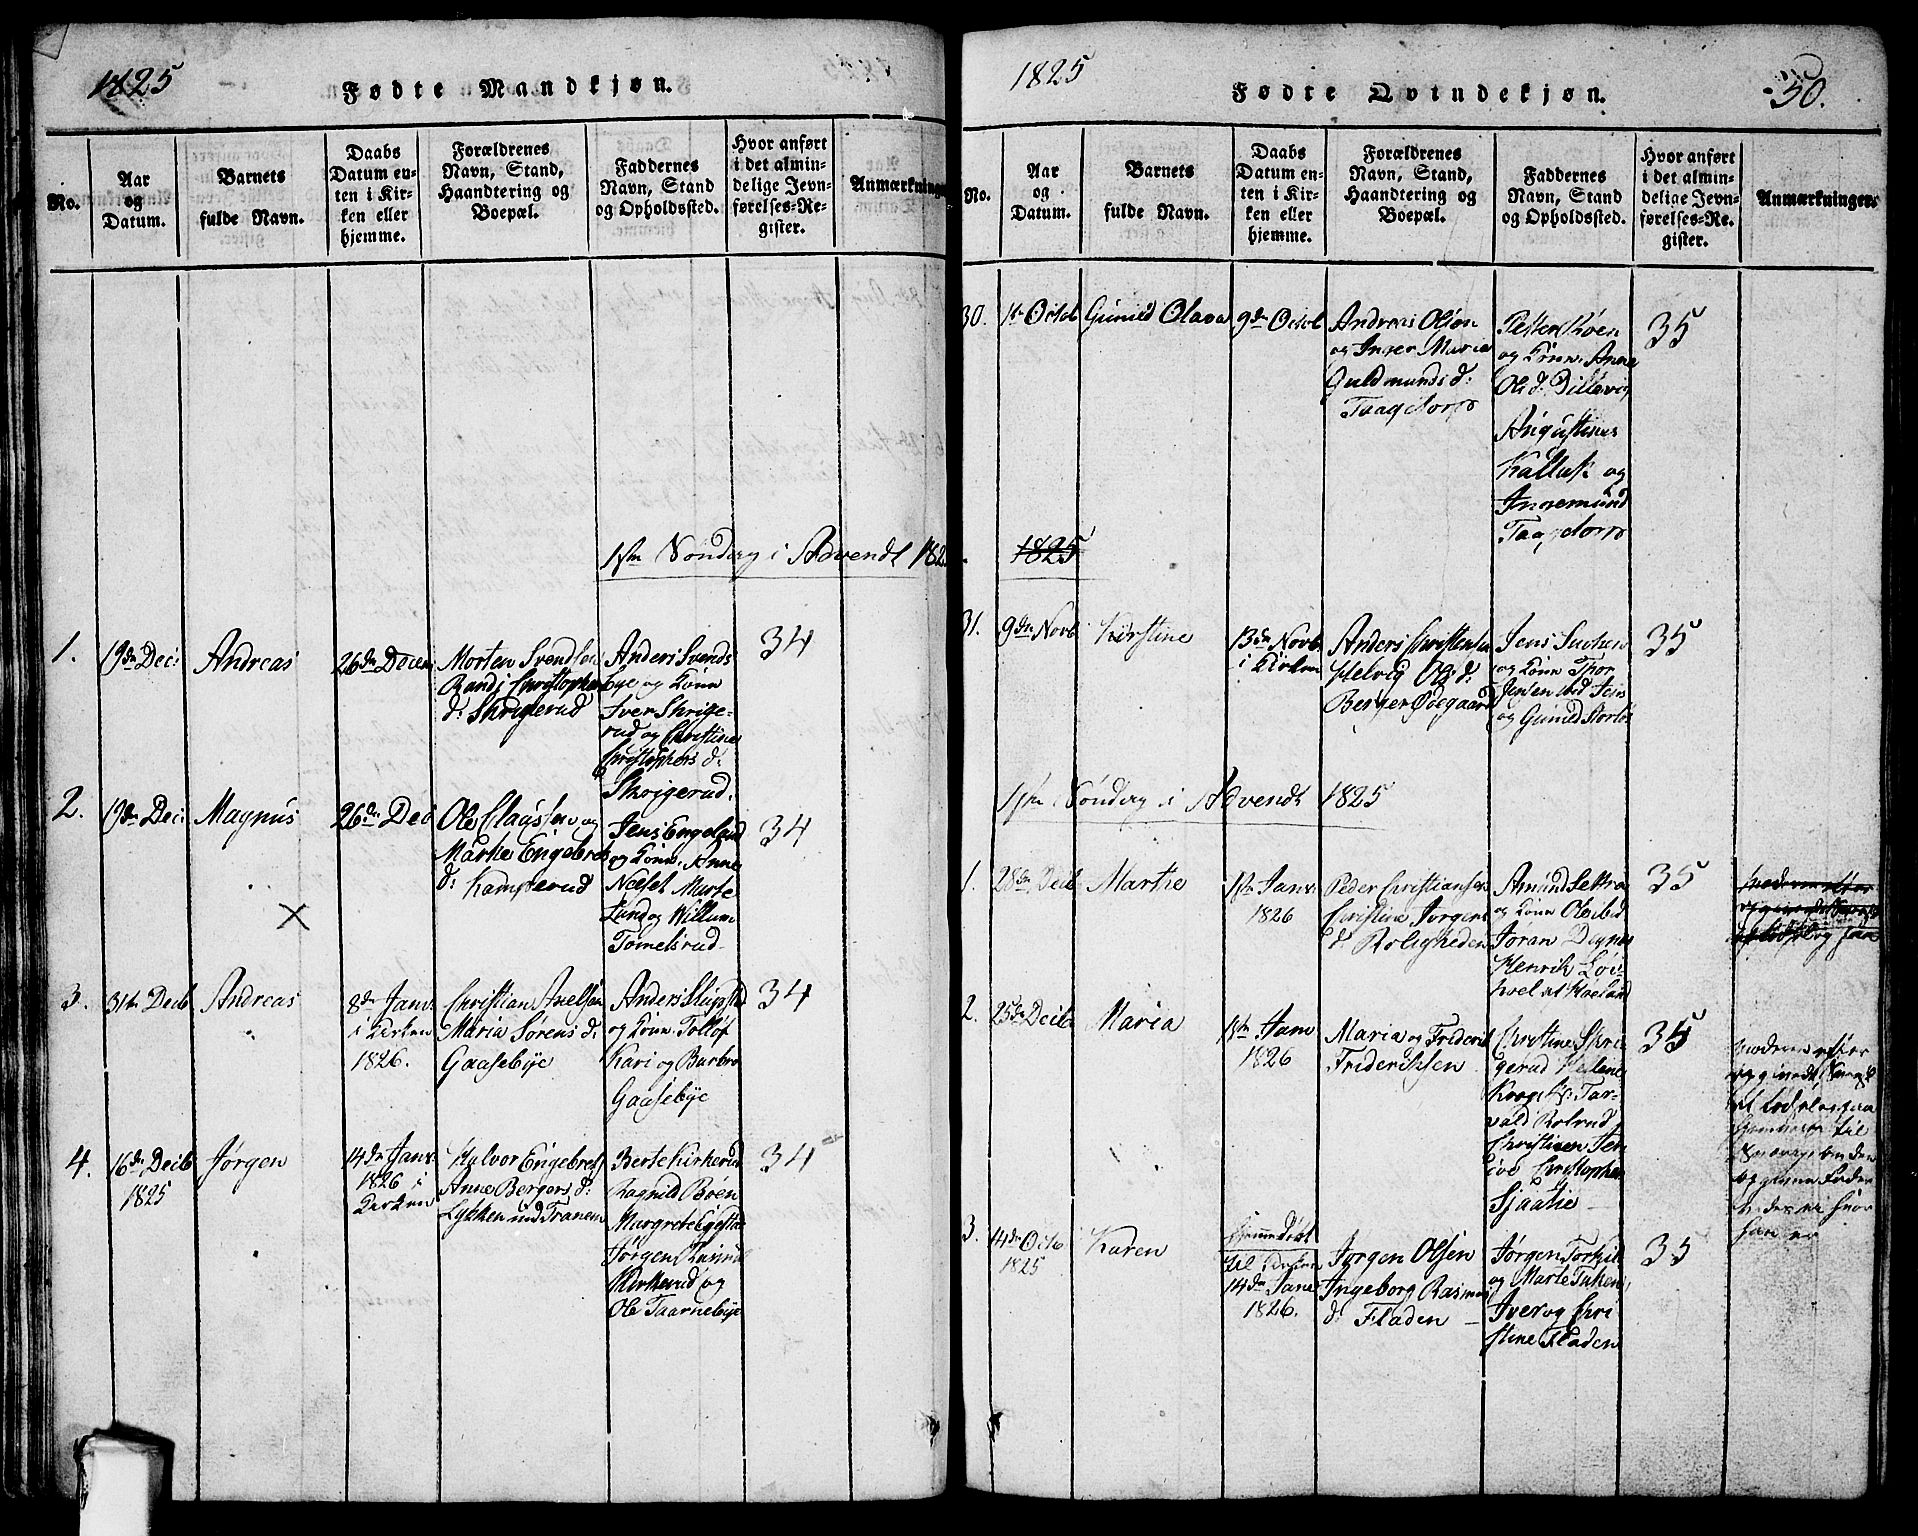 1825
Fødte Mandkjøn.
No.
Aar
og
Datum.
Barnets
fulde Navn.
Daabs
Datum en-
ten i Kir-
ken eller
hjemme.
Forældrenes
Navn, Stand,
Haandtering og
Boepæl.
Faddernes
Navn, Stand
og Opholdssted.
Hvor anført
i det almin-
delige Jevn-
førelses-Re-
gister.
Anmærkninger
1ste Søndag i Advendt 182
1.
19de Deci
Andreas
26de Decem
Morten Svendsen
Randi Christophers
d: Skrigerud
Anders Svends
bye og Kone
Iver Skrige-
rud og Christine
Christophers d:
Skrigerud.
34
2.
19de Deci
Magnus
26de Dec
Ole Claussen og
Marthe Engebrets
d: Kamperud
Jens Engeland
og Kone. Anne
Næset Marte
Lund og Willum
Tomelsrud
34
3.
31te Decb
Andreas
8de Janv.
i Kirken
1826.
Christian Axelsen
Maria Sørens d:
Gaasebye
Anders Slupstad
og Kone Tolløf
Kari og Barbro
Gaasebye
34
4.
16de Decb
1825
Jørgen
14de Janv.
1826 i
Kirken
Halvor Engebrets
Anne Bergers d:
Lykken und Tranem
Berte Kirkerud
Ragnild Böen
Margrete Egestad
Jørgen
Kirkerud og
Ole Taarnebye
34
1825
Fødte Qvindekjøn.
50.
No.
Aar
og
Datum.
Barnets
fulde Navn.
Daabs
Datum en-
ten i Kir-
ken eller
hjemme.
Forældrenes
Navn, Stand,
Haandtering og
Boepæl.
Faddernes
Navn, Stand
og Opholdssted.
Hvor anført
i det almin-
delige Jevn-
førelses-Re-
gister.
Anmærkninger.
30.
1ste Octob
Gunild Olava
9de Octob
Andreas Olsen
og Inger Maria
Guldmunds d:
Taagdorp
Petter Köen
og Kone. Anne
Ols d. Dillevig
Augustinus
Kalluk og
Ingemund
Taagdorp
35
1825
31.
9de Novb
Kirstine
13de Novb.
i Kirken
Anders Christensen
Helvig Ols d:
Berger Ødegaard
Jens
og Kone Thor
Jensen ibd Jens
og Gunild
35
1ste Søndag i Advendt 1825
1.
28de Decb
Marthe
1ste Janv.
1826
Peder Christiansen
Christine Jørgens
d. Roligheden
Amund
og Kone Ole ibd
Joran Degnes
Henrik Löi-
35
2.
25de Decb.
Maria
1ste Janv
1826
Maria og Friderik
Frideriksen
Christine Skri-
gerud Helene
Krog Tar-
vald Rolsrud
Christinen
Christophen
Sjaatie
35
Moderen efter
til
han er
3.
14de Octb
1825
Karen
hjemmedöbt
til Kirken
14de Janv
1826.
Jørgen Olsen
Ingeborg Rasmus
d. Fladen
Jørgen Torkil
og Marte Tuken,
Iver og Chri-
stine Fladen
35